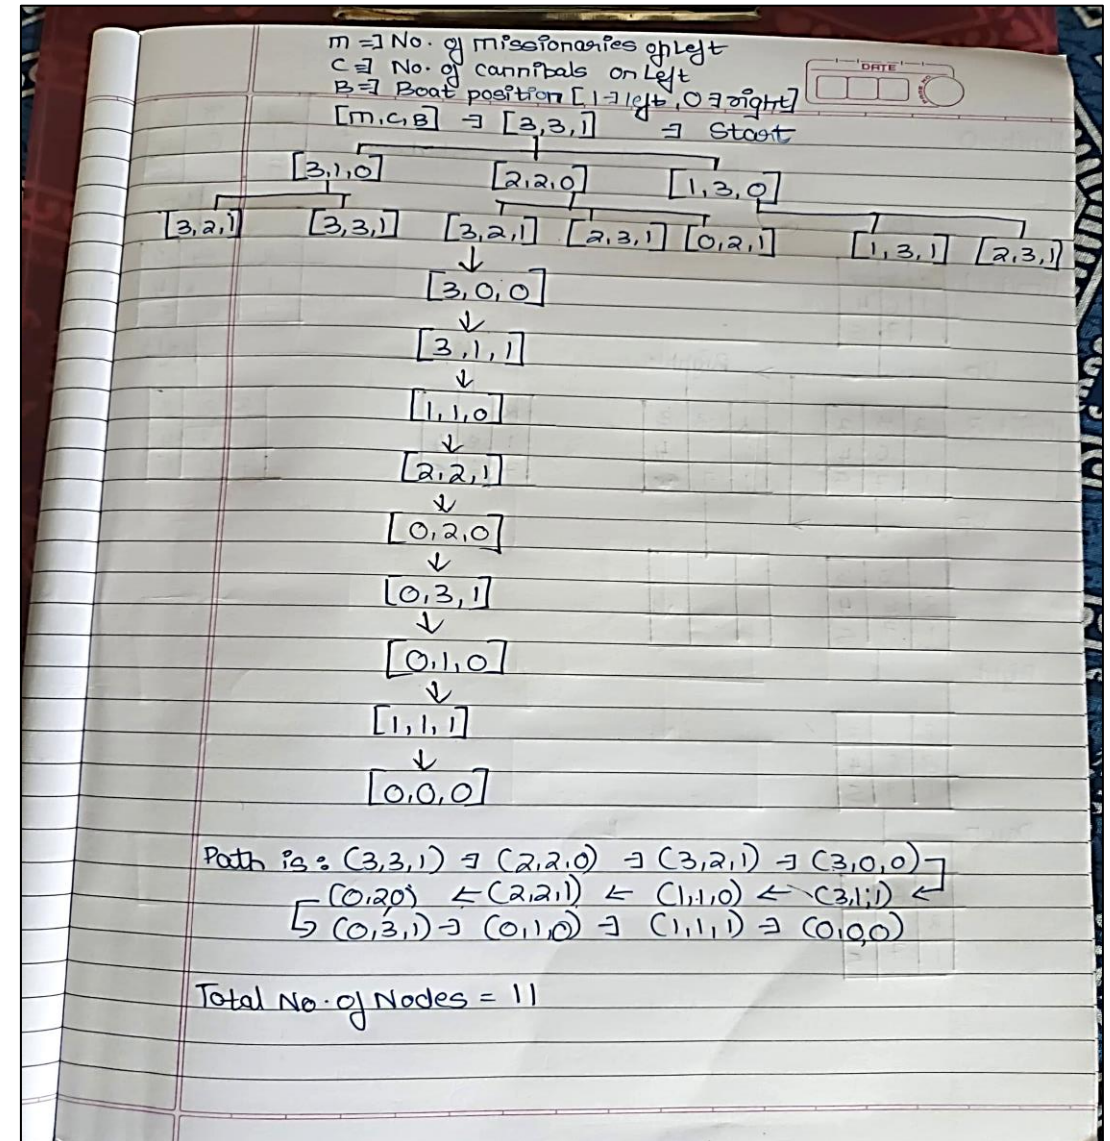 m ⇒ No. of missionaries on Left
C ⇒ No. of cannibals on Left
B ⇒ Boat position [1 ⇒ left, 0 ⇒ right]
DATE
[m,C,B] ⇒ [3,3,1] ⇒ Start
[3,1,0] [2,2,0] [1,3,0]
[3,2,1] [3,3,1] [3,2,1] [2,3,1] [0,2,1] [1,3,1] [2,3,1]
↓
[3,0,0]
↓
[3,1,1]
↓
[1,1,0]
↓
[2,2,1]
↓
[0,2,0]
↓
[0,3,1]
↓
[0,1,0]
↓
[1,1,1]
↓
[0,0,0]
Path is: (3,3,1) ⇒ (2,2,0) ⇒ (3,2,1) ⇒ (3,0,0)
(0,2,0) ← (2,2,1) ← (1,1,0) ← (3,1,1) ←
↳ (0,3,1) ⇒ (0,1,0) ⇒ (1,1,1) ⇒ (0,0,0)
Total No. of Nodes = 11